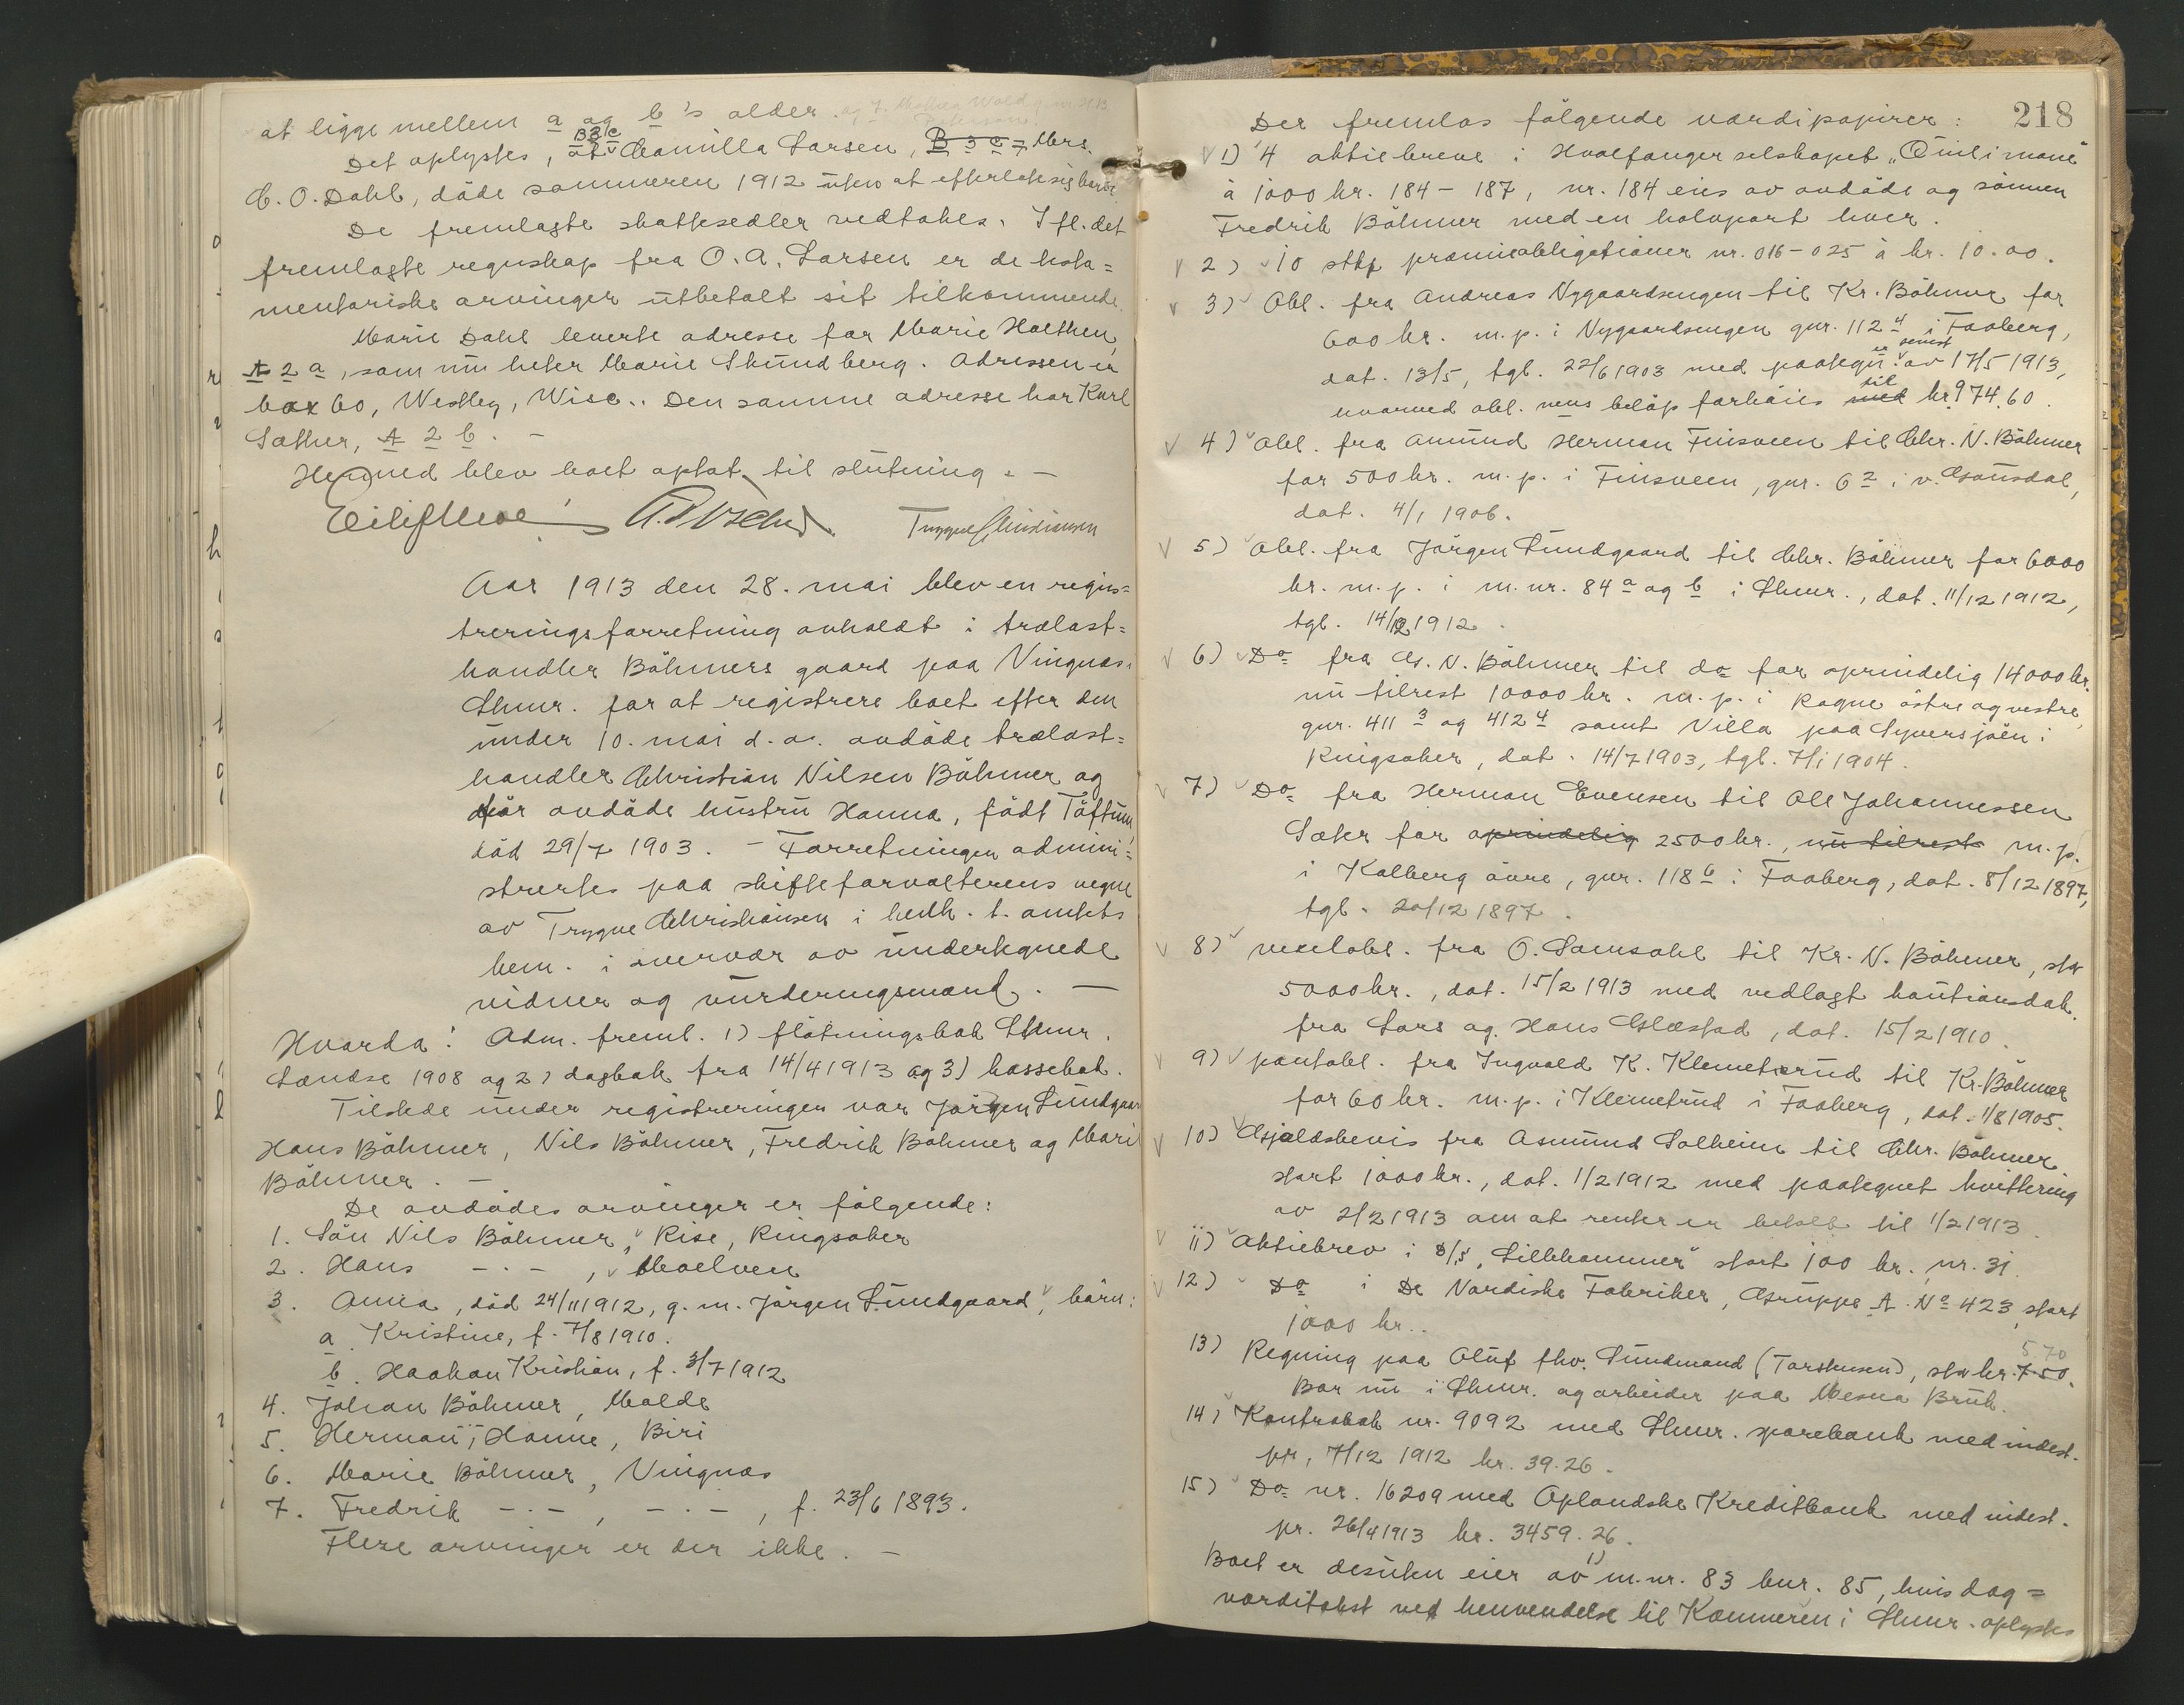 at ligge mellem a og b's alder.
Det oplystes, at B 3 c Camilla Larsen, B 3 c = Mrs.
C. O. Dahl, döde sommeren 1912 uten at efterlate sig barn.
De fremlagte skattesedler vedtakes. Ifl. det
fremlagte regnskap fra O. A. Larsen er de testa=
mentariske arvinger utbetalt sit tilkommende.
Marie Dahl leverte adresse for Marie Holthen,
A 2 a, som nu heter Marie Skundberg. Adressen er
box 60, Westby, Wisc.. Den samme adresse har Karl
Sæther, A 2 b. -
Hermed blev boet optat til slutning. -
Eilif Moe Trygve Christiansen
Aar 1913 den 28. mai blev en regis=
treringsforretning avholdt i trælast=
handler Böhmers gaard paa Vingnæs,
Lhmr. for at registrere boet efter den
under 10. mai d. a. avdöde trælast=
handler Christian Nilsen Böhmer og
för avdöde hustru Hanna, födt Töftum,
död 29/7 1903. - Forretningen admini=
strertes paa skifteforvalterens vegne
av Trygve Christiansen i henh. t. amtets
bem. i overvær av undertegnede
vidner og vurderingsmænd. -
Hvorda: Adm. freml. 1) flötningsbok Lhmr.
Lændse 1908 og 2) dagbok fra 14/4 1913 og 3) kassebok.
Tilstede under registreringen var Jörgen Sundgaard
Hans Böhmer, Nils Böhmer, Fredrik Böhmer og Marie
Böhmer. -
De avdödes arvinger er fölgende:
1. Sön Nils Böhmer, Rise, Ringsaker
2. Hans - . - , Moelven
3. Anna, död 24/11 1912, g. m. Jörgen Sundgaard, barn:
a. Kristine, f. 7/8 1910.
b. Haakon Kristian, f. 3/7 1912
4. Johan Böhmer, Molde
5. Herman " , Honne, Biri
6. Marie Böhmer, Vingnæs
7. Fredrik - . - , - . - , f. 23/6 1893.
Flere arvinger er der ikke. -
218
Der fremlas fölgende værdipapirer:
1) 4 aktiebreve i Hvalfangerselskapet "Quilimane"
à 1000 kr. 184 - 187, nr. 184 eies av avdöde og sönnen
Fredrik Böhmer med en halvpart hver.
2) 10 stkr præmieobligationer nr. 016 - 025 à kr. 10.00.
3) Obl. fra Andreas Nygaardsengen til Kr. Böhmer for
600 kr. m. p. i Nygaardsengen gnr. 112 4 i Faaberg,
dat. 13/5, tgl. 22/6 1903 med paategn. er senest av 17/5 1913,
hvorved obl. nens belöp forhöies med til kr. 974.60.
4) Obl. fra Amund Herman Finsveen til Chr. N. Böhmer
for 500 kr. m. p. i Finsveen, gnr. 6 2 i v. Gausdal,
dat. 4/1 1906.
5) Obl. fra Jörgen Sundgaard til Chr. Böhmer for 6000
kr. m. p. i m. nr. 84 a og b i Lhmr., dat. 11/12 1912,
tgl. 14/12 1912.
6) Do fra N. Böhmer til do for oprindelig 14000 kr.
nu tilrest 10000 kr. m. p. i Kogne östre og vestre,
gnr. 411 3 og 412 4 samt Villa paa Syversjöen i
Ringsaker, dat. 14/7 1903, tgl. 7/1 1904.
7) Do fra Herman Evensen til Ole Johannessen
Sæter for oprindelig 2500 kr., nu tilrest m. p.
i Kalberg övre, gnr. 118 6 i Faaberg, dat. 8/12 1897,
tgl. 20/12 1897.
8) vexelobl. fra O. Lomsdal til Kr. N. Böhmer, stor
5000 kr., dat. 15/2 1913 med vedlagt kautionsdok.
fra Lars og Hans Glæstad, dat. 15/2 1910.
9) pantobl. fra Ingvald K. Klemetsrud til Kr. Böhmer
for 60 kr. m. p. i Klemetrud i Faaberg, dat. 1/8 1905.
10) Gjældsbevis fra Asmund Solheim til Chr. Böhmer
stort 1000 kr., dat. 1/2 1912 med paategnet kvittering
av 2/2 1913 om at renter er betalt til 1/2 1913.
11) Aktiebrev i D/S "Lillehammer" stort 100 kr. nr. 31.
12) Do i De Nordiske Fabriker, Gruppe A No 423, stort
1000 kr..
13) Regning paa Oluf fhv. Sundmand (Torstensen), stor kr. 7.50. 5.70
Bor nu i Lhmr. og arbeider paa Mesna Bruk.
14) Kontrabok nr. 9092 med Lhmr. sparebank med indest.
pr. 7/12 1912 kr. 39.26.
15) Do nr. 16209 med Oplandske Kreditbank med indest.
pr. 26/4 1913 kr. 3459.26.
Boet er desuten eier av 1) m. nr. 83 bnr. 85, hvis dag=
værditakst ved henvendelse til Kæmneren i Lhmr. oplystes